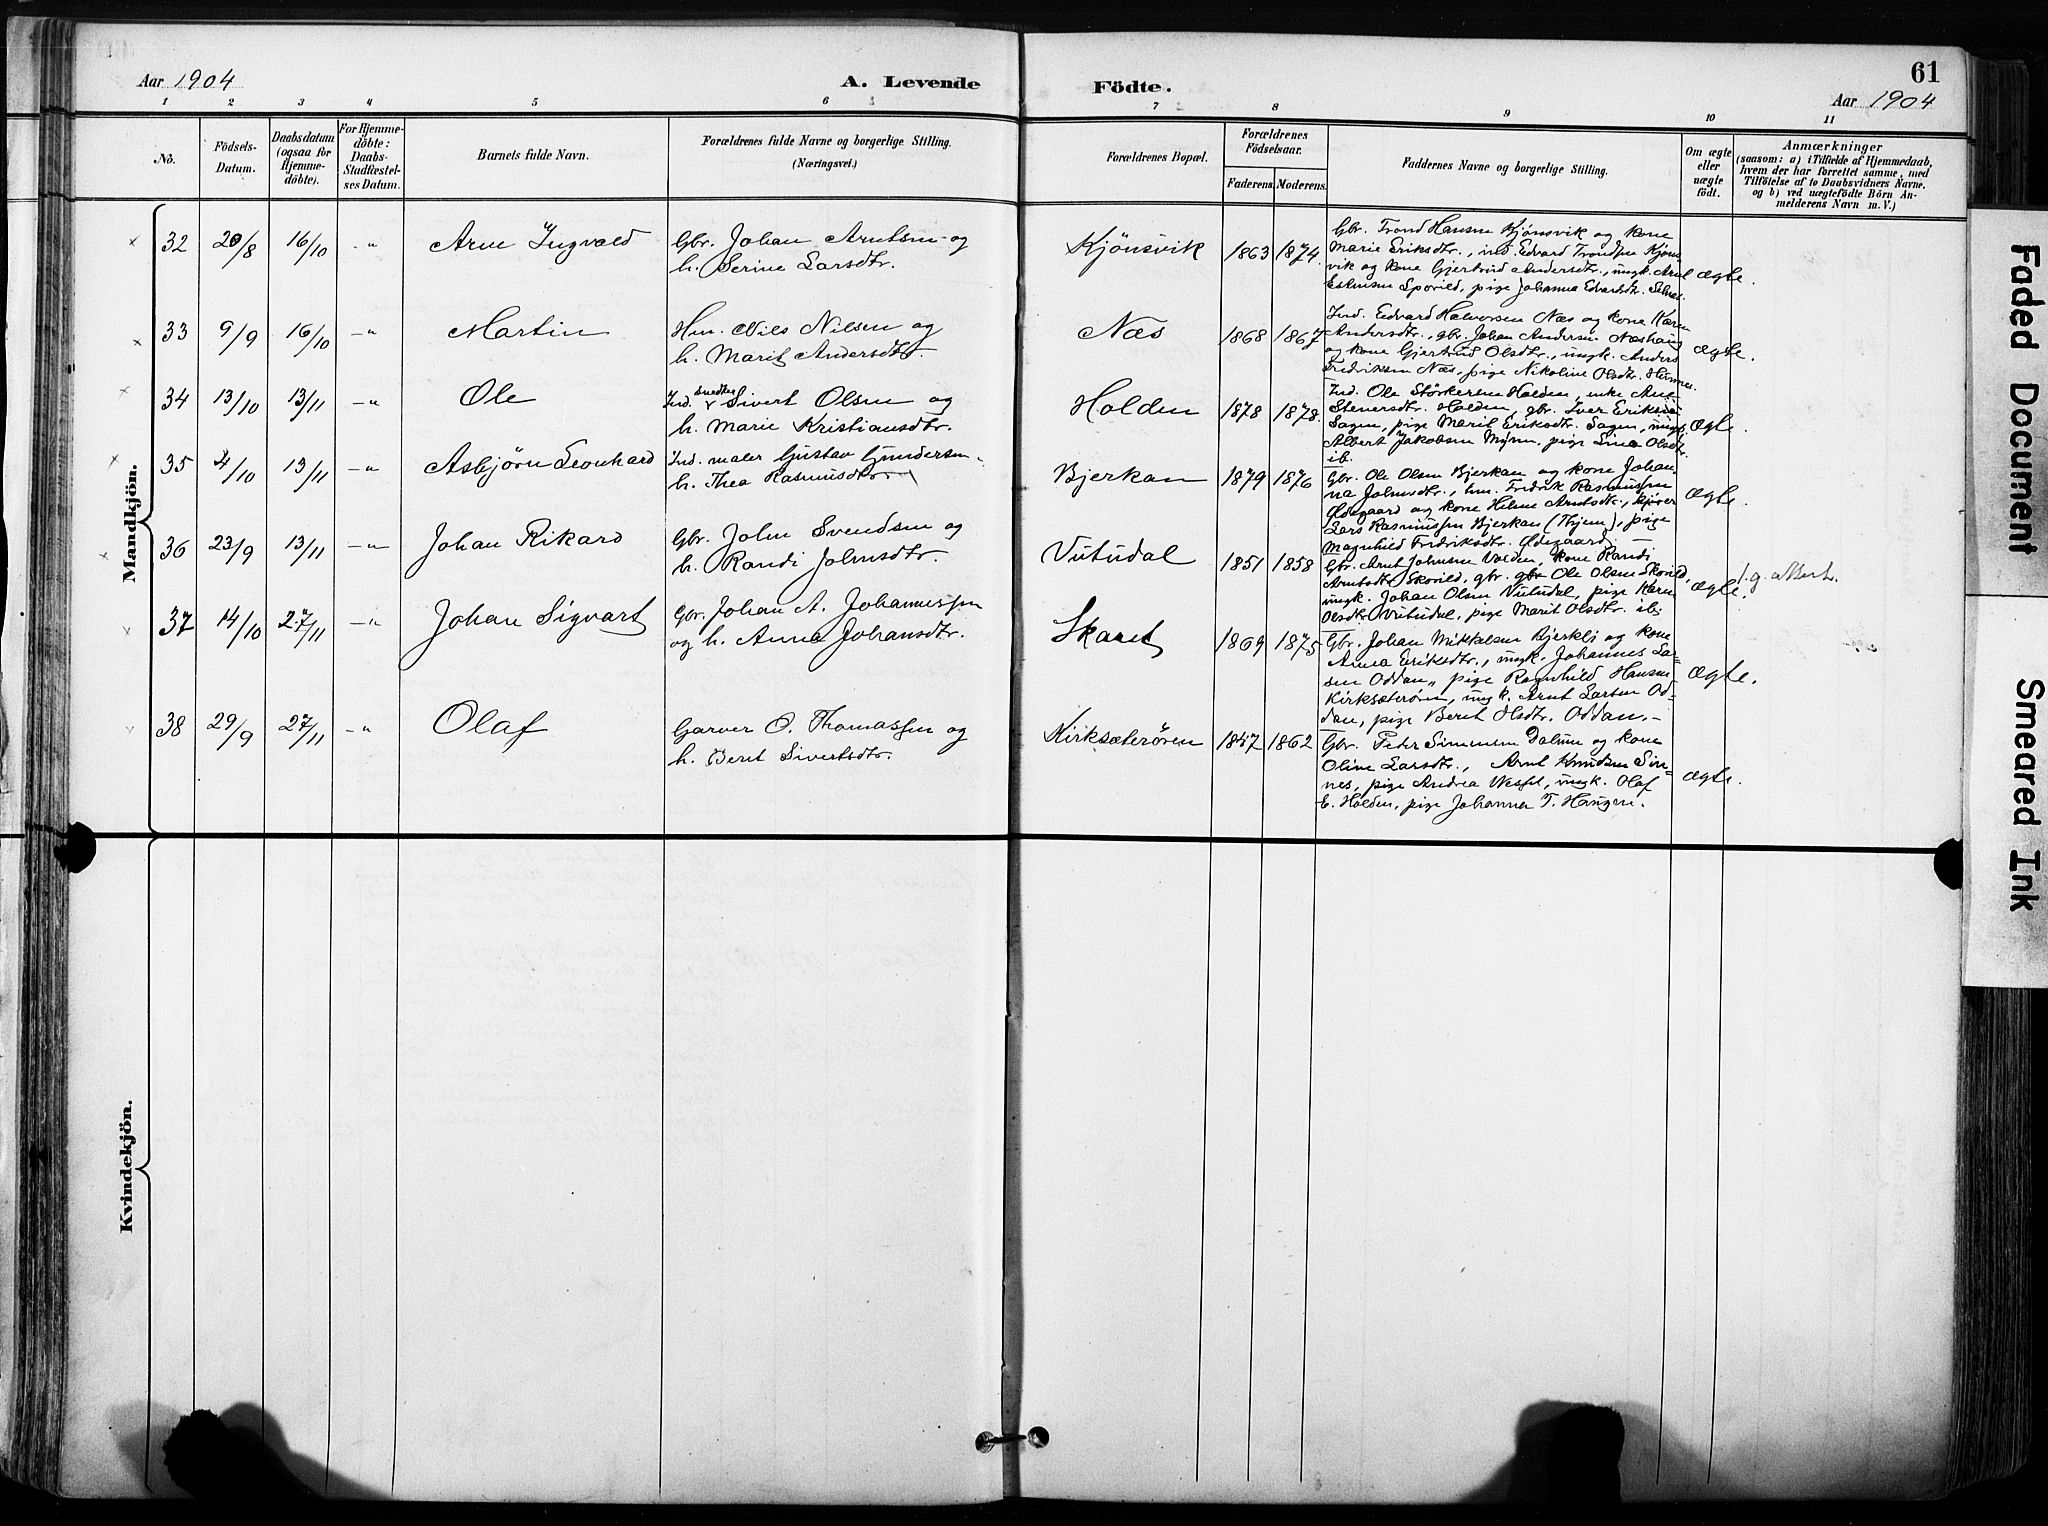 Aar 1904
A. Levende
Födte.
61
Aar 1904
1 2 3 4 5 6 7 8 9 10 11
No.
Födsels-
Datum.
Daabsdatum
(ogsaa for
Hjemme-
döbte).
For Hjemme-
döbte:
Daabs-
Stadfæstel-
ses Datum.
Barnets fulde Navn.
Forældrenes fulde Navne og borgerlige Stilling.
(Næringsvei.)
Forældrenes Bopæl.
Forældrenes
Födselsaar.
Faderens. Moderens.
Faddernes Navne og borgerlige Stilling.
Om ægte
eller
uægte
födt.
Anmærkninger
(saasom: a) i Tilfælde af Hjemmedaab,
hvem der har forrettet samme, med
Tilföielse af to Daabsvidners Navne.
og b) ved uægtefödte Börn An-
melderens Navn m. V.)
Mandkjön.
32 20/8 16/10 -"- Arne Ingvald
Gbr. Johan Arntsen og
h. Serine Larsdtr.
Kjönsvik 1863 1874
Gbr. Trond Hansen Kjönsvik og kone
Marie Eriksdtr., ind. Edvard Trondsen Kjöns
vik og kone Gjertrud Andersdtr., ungk. Arnt
Estensen Sporild, pige Johanna Edvardsdtr.
ægte.
33 9/9 16/10 -"- Martin
Hm. Nils Nilsen og
h. Marit Andersdtr.
Næs 1868 1867
Ind. Edvard Halvorsen Næs og kone Karen
Andersdtr., gbr. Johan Andersen Næshaug
og kone Gjertrud Olsdtr., ungk. Anders
Fredriksen Næs, pige Nikoline Olsdtr. Hemnes.
ægte.
34 13/10 13/11 -"- Ole
Ind. snedker Sivert Olsen og
h. Marie Kristiansdtr.
Holden 1878 1878.
Ind. Ole Störkersen Holden, enke Ane
Stenersdtr. Holden, gbr. Iver Eriksen
Sagen, pige Marit Eriksdtr. Sagen, ungk.
Albert Jakobsen Myren, pige Sina Olsdtr.
ib.
ægte.
35 4/10 13/11 -"- Asbjörn Leonhard
Ind. maler Gustav Gundersen
h. Thea Rasmusdtr.
Bjerkan 1879 1876
Gbr. Ole Olsen Bjerkan og kone Johan-
na Johnsdtr., hm. Fredrik Rasmussen
Ødegaard og kone Helene Arntsdtr., kjörer
Lars Rasmussen Bjerkan (Thjem), pige
Magnhild Fredriksdtr. Ødegaard.
ægte.
36 23/9 13/11 -"- Johan Rikard
Gbr. John Svendsen og
h. Randi Johnsdtr.
Vutudal 1851 1858
Gbr. Arnt Johnsen Volden, kone Randi
Arntsdtr. Skorild, gbr. gbr. Ole Olsen Skorild,
ungk. Johan Olsen Vutudal, pige Karen
Olsdtr. Vutudal, pige Marit Olsdtr. ib.
ægte.
37 14/10 27/11 -"- Johan Sigvart
Gbr. Johan A. Johannessen
og h. Anna Johansdtr.
Skaret 1869 1875
Gbr. Johan Mikkelsen Bjerkli og kone
Anna Eriksdtr., ungk. Johannes Lar-
sen Oddan, pige Ragnhild Hansen
Kirksæterøren, ungk. Arnt Larsen Od-
dan, pige Berit Olsdtr. Oddan.
ægte.
38 29/9 27/11 -"- Olaf
Garver O. Thomassen og
h. Berit Sivertsdtr.
Kirksæterøren 1847 1862
Gbr. Peder Simonsen Dalum og kone
Oline Larsdtr., Arnt Knudsen Sin-
nes, pige Andrea Wessel, ungk. Olaf
E. Holden, pige Johanna T. Haugen.
ægte.
Kvindekjön.
Faded Document
Smeared Ink